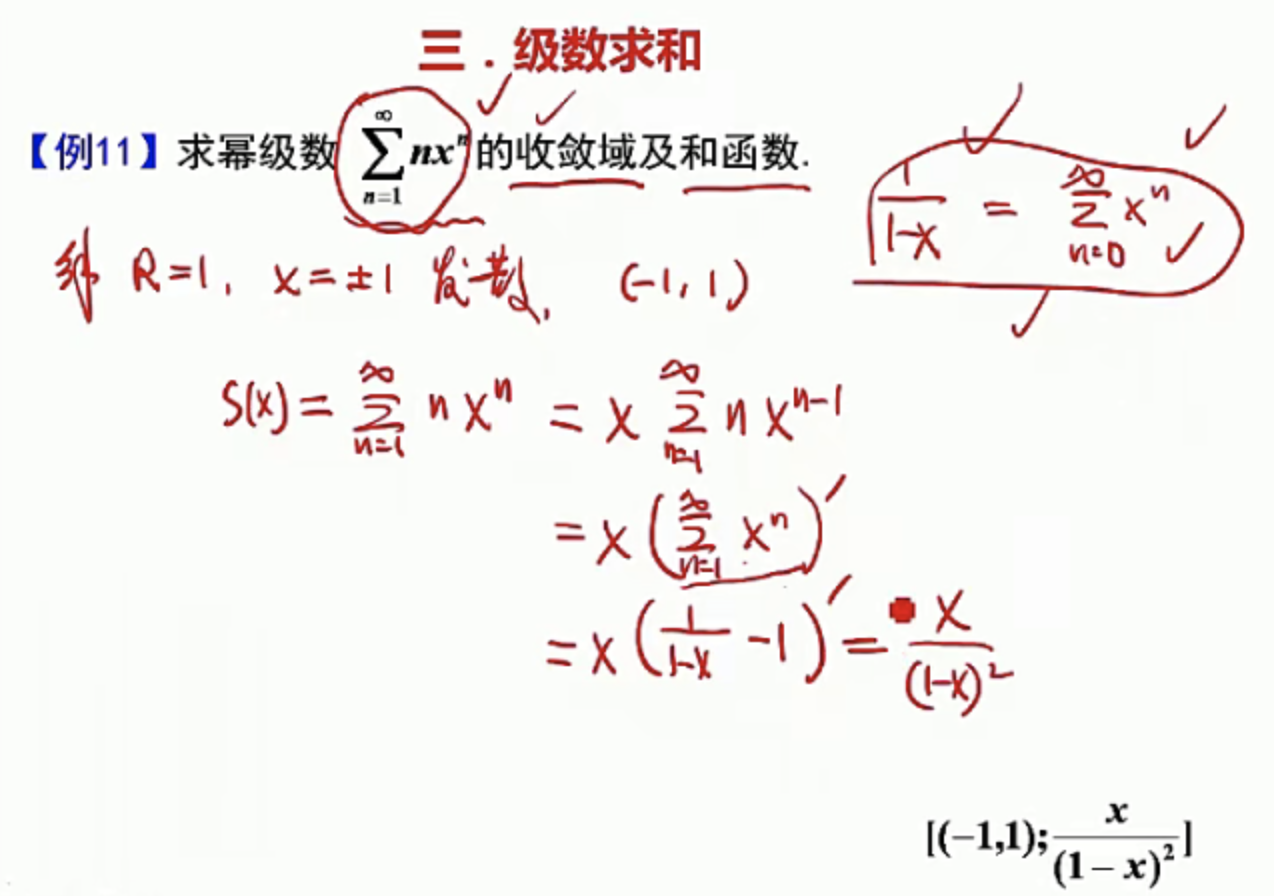 三．级数求和
【例11】求幂级数 $\sum_{n=1}^{\infty} nx^n$ 的收敛域及和函数.
$\frac{1}{1-x} = \sum_{n=0}^{\infty} x^n$
解 R=1, x=±1 发散, (-1,1)
$S(x) = \sum_{n=1}^{\infty} n x^n = x \sum_{n=1}^{\infty} n x^{n-1}$
$= x \left( \sum_{n=1}^{\infty} x^n \right)'$
$= x \left( \frac{1}{1-x} - 1 \right)' = \frac{x}{(1-x)^2}$
$[(-1,1); \frac{x}{(1-x)^2}]$